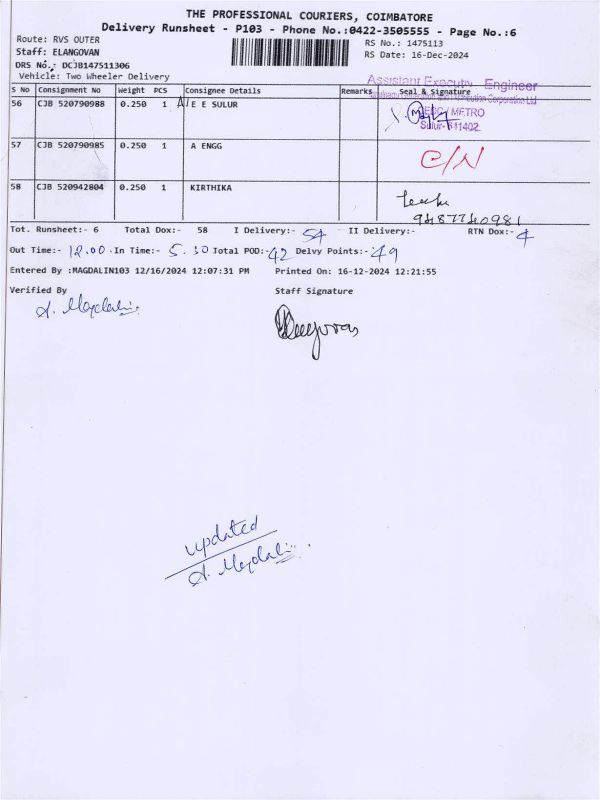 THE PROFESSIONAL COURIERS, COIMBATORE
Delivery Runsheet - P103 - Phone No.:0422-3505555 - Page No.:6
Route: RVS OUTER
RS No.: 1475113
Staff: ELANGOVAN
RS Date: 16-Dec-2024
DRS No.: DCJB147511306
Vehicle: Two Wheeler Delivery
S No Consignment No Weight PCS Consignee Details Remarks Seal & Signature
Assistant Executive Engineer
56 CJB 520790988 0.250 1 A E E SULUR
METRO
Sulur-641402.
57 CJB 520790985 0.250 1 A ENGG C/N
58 CJB 520942804 0.250 1 KIRTHIKA
9487740981
Tot. Runsheet:- 6 Total Dox:- 58 I Delivery:- 54 II Delivery:- RTN Dox:- 4
Out Time:- 12.00 In Time:- 5.30 Total POD:- 42 Delvy Points:- 49
Entered By :MAGDALIN103 12/16/2024 12:07:31 PM Printed On: 16-12-2024 12:21:55
Verified By Staff Signature
A. Magdalin
updated
A. Magdalin